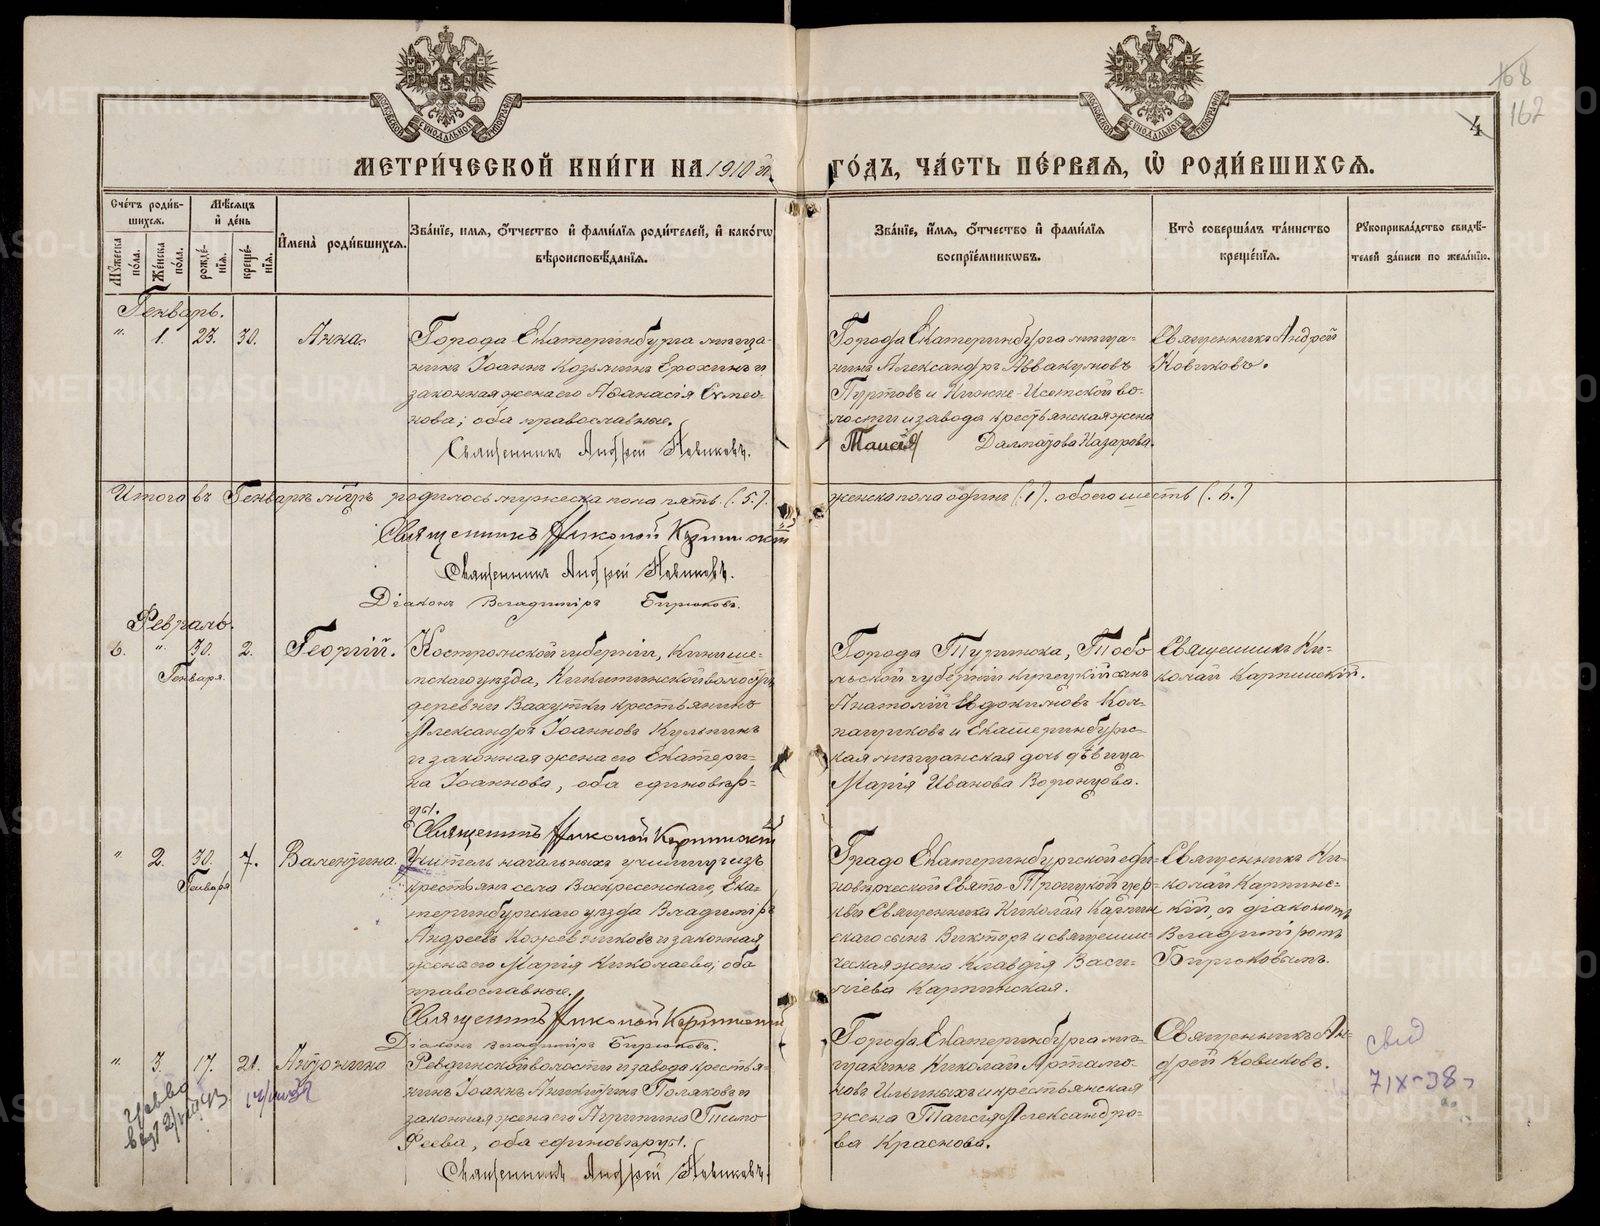 168
162
4
МОСКОВСКОЙ СѴНОДАЛЬНОЙ ТИПОГРАФІИ
МОСКОВСКОЙ СѴНОДАЛЬНОЙ ТИПОГРАФІИ
МЕТРИ́ЧЕСКОЙ КНИ́ГИ НА 1910 й
ГО́ДЪ, ЧА́СТЬ ПЕ́РВАЯ, Ѡ РОДИ́ВШИХСЯ.
Сче́тъ роди́в-
шихся.
Мѣ́сяцъ
и҆ де́нь
Мꙋ́жеска
по́ла.
Же́нска
по́ла.
рожде́-
нїя.
креще́-
нїя.
И҆мена̀ роди́вшихся.
Зва́нїе, имя, ѻ҆́тчество и҆ фами́лїя роди́телей, и҆ како́гѡ
вѣроисповѣ́данїя.
Зва́нїе, и҆́мя, ѻ҆́тчество и҆ фами́лїя
воспрїе́мникѡвъ.
Кто̀ соверша́лъ та́инство
креще́нїя.
Рꙋкоприкла́дство свидѣ́-
телей за́писи по жела́нїю.
Генварь.
" 1. 23. 30. Анна
Города Екатеринбурга мѣща-
нинъ Іоаннъ Козьминъ Ерохинъ и
законная жена его Аѳанасія Симео-
нова; оба православные.
Священникъ Андрей Новиковъ.
Города Екатеринбурга мѣща-
нинъ Александръ Аввакумовъ
Пуртовъ и Нижне-Исетской во-
лости и завода крестьянская жена
Таисія Далматова Назарова.
Священникъ Андрей
Новиковъ.
Итого въ Генварѣ м̃цѣ родилось мужеска пола пять (.5.).
женска пола одинъ (.1). обоего шесть (.6.)
Священникъ Николай Карпинскій
Священникъ Андрей Новиковъ.
Діаконъ Владиміръ Бирюковъ.
Февраль.
6. " 30. 2. Георгій.
Генваря.
Костромской губерніи, Кинеше-
мскаго уѣзда, Никитинской волости,
деревни Вахутки крестьянинъ
Александръ Іоанновъ Кульпинъ
и законная жена его Екатери-
на Іоаннова, оба единовѣр-
цы.
Священникъ Николай Карпинскій
Города Туринска, Тобо-
льской губерніи купецкій сынъ
Анатолій Евдокимовъ Кол-
пащиковъ и Екатеринбург-
ская мѣщанская дочь дѣвица
Марія Иванова Воронцова.
Священникъ Ни-
колай Карпинскій.
" 2. 30. 7. Валентина.
Генваря
Учитель начальныхъ училищъ изъ
крестьянъ села Воскресенскаго, Ека-
теринбургскаго уѣзда Владиміръ
Андреевъ Кожевниковъ и законная
жена его Марія Николаева; оба
православные.
Священникъ Николай Карпинскій
Діаконъ Владиміръ Бирюковъ.
Градо Екатеринбургской еди-
новѣрческой Свято-Троицкой цер-
кви Священника Николая Карпин
скаго сынъ Викторъ и священни-
ческая жена Клавдія Васи-
льева Карпинская.
Священникъ Ни-
колай Карпинс-
кій, съ діакономъ
Владиміромъ
Бирюковымъ.
" 3. 17. 21. Антонина
Ревдинской волости и завода крестья-
нинъ Іоаннъ Никитинъ Поляковъ и
законная жена его Агрипина Тимо
ѳеева, оба единовѣрцы.
Священникъ Андрей Новиковъ.
Города Екатеринбурга мѣ-
щанинъ Николай Артамо-
новъ Ильиныхъ и крестьянская
жена Таисія Александро-
ва Краснова.
Священникъ Ан-
дрей Новиковъ.
свид
7 IX-38